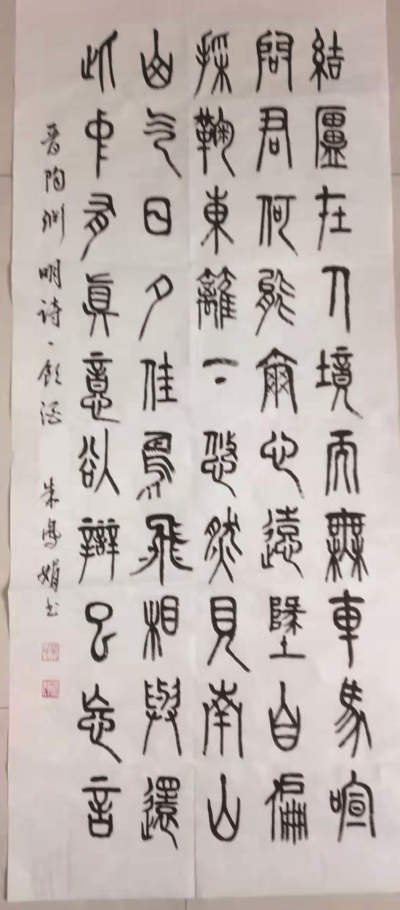 結廬在人境而無車馬喧
問君何能爾心遠墬自偏
採鞠東籬下悠然見南山
山气日夕佳鳥飛相與還
此中有眞意欲辯已忘言
晋陶渊明诗、饮酒 朱鳳娟书